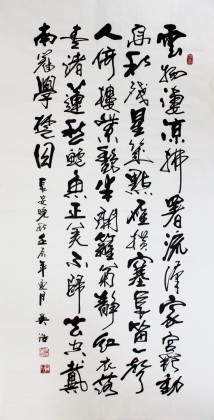 雲物凄涼拂曙流漢家宮闕動
高秋殘星幾點雁橫塞長笛一聲
人倚樓紫艷半開籬菊靜紅衣落
盡渚蓮愁鱸魚正美不歸去空戴
南冠學楚囚
長安晚秋壬辰年月